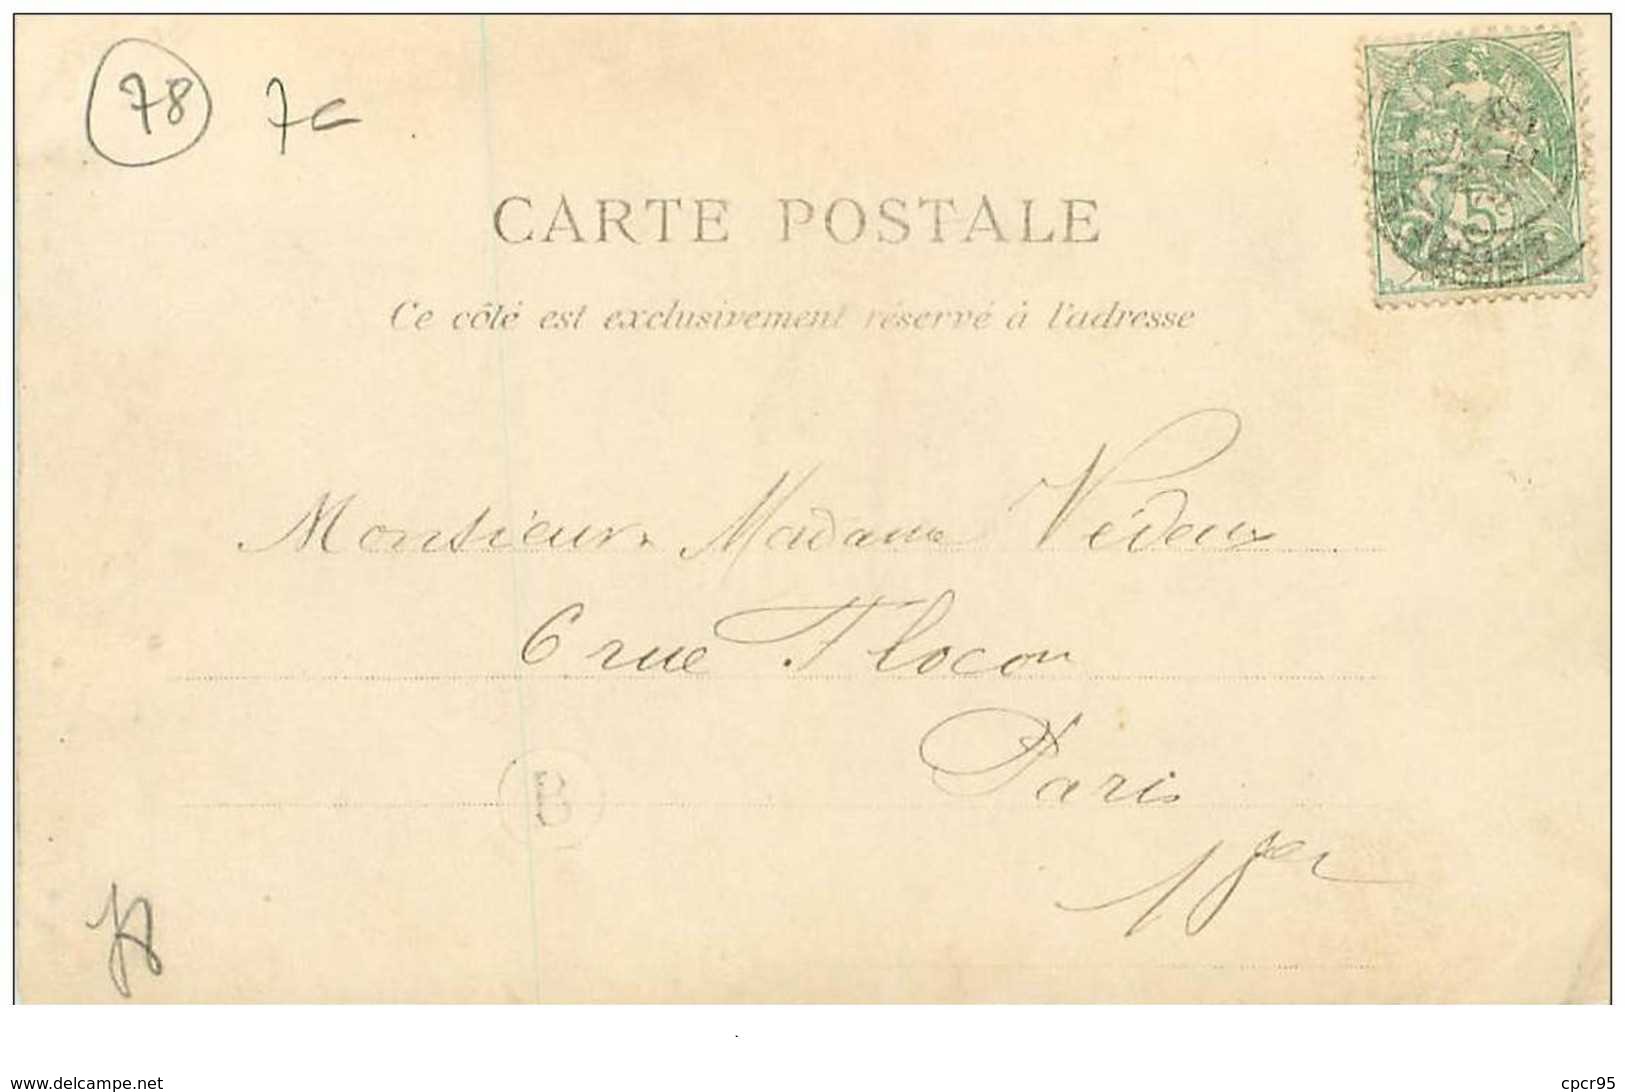 78 7c
CARTE POSTALE
Ce côté est exclusivement réservé à l'adresse
5c
Monsieur Madame Védeux
6 rue Flocon
Paris
B
18er
78
www.delcampe.net
cpcr95